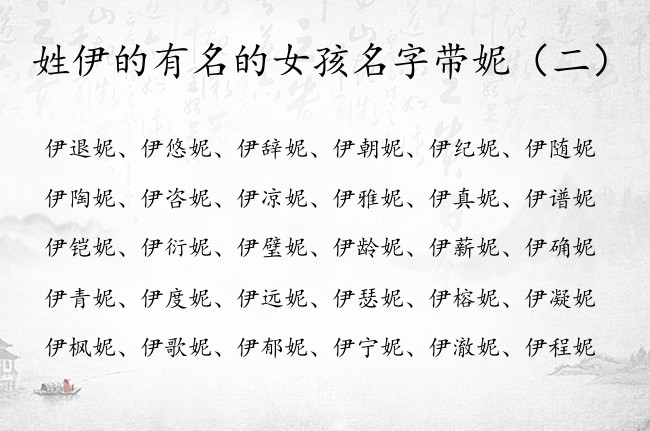 姓伊的有名的女孩名字带妮（二）
伊退妮、伊悠妮、伊辞妮、伊朝妮、伊纪妮、伊随妮
伊陶妮、伊咨妮、伊凉妮、伊雅妮、伊真妮、伊谱妮
伊铠妮、伊衍妮、伊璧妮、伊龄妮、伊薪妮、伊确妮
伊青妮、伊度妮、伊远妮、伊瑟妮、伊榕妮、伊凝妮
伊枫妮、伊歌妮、伊郁妮、伊宁妮、伊澈妮、伊程妮